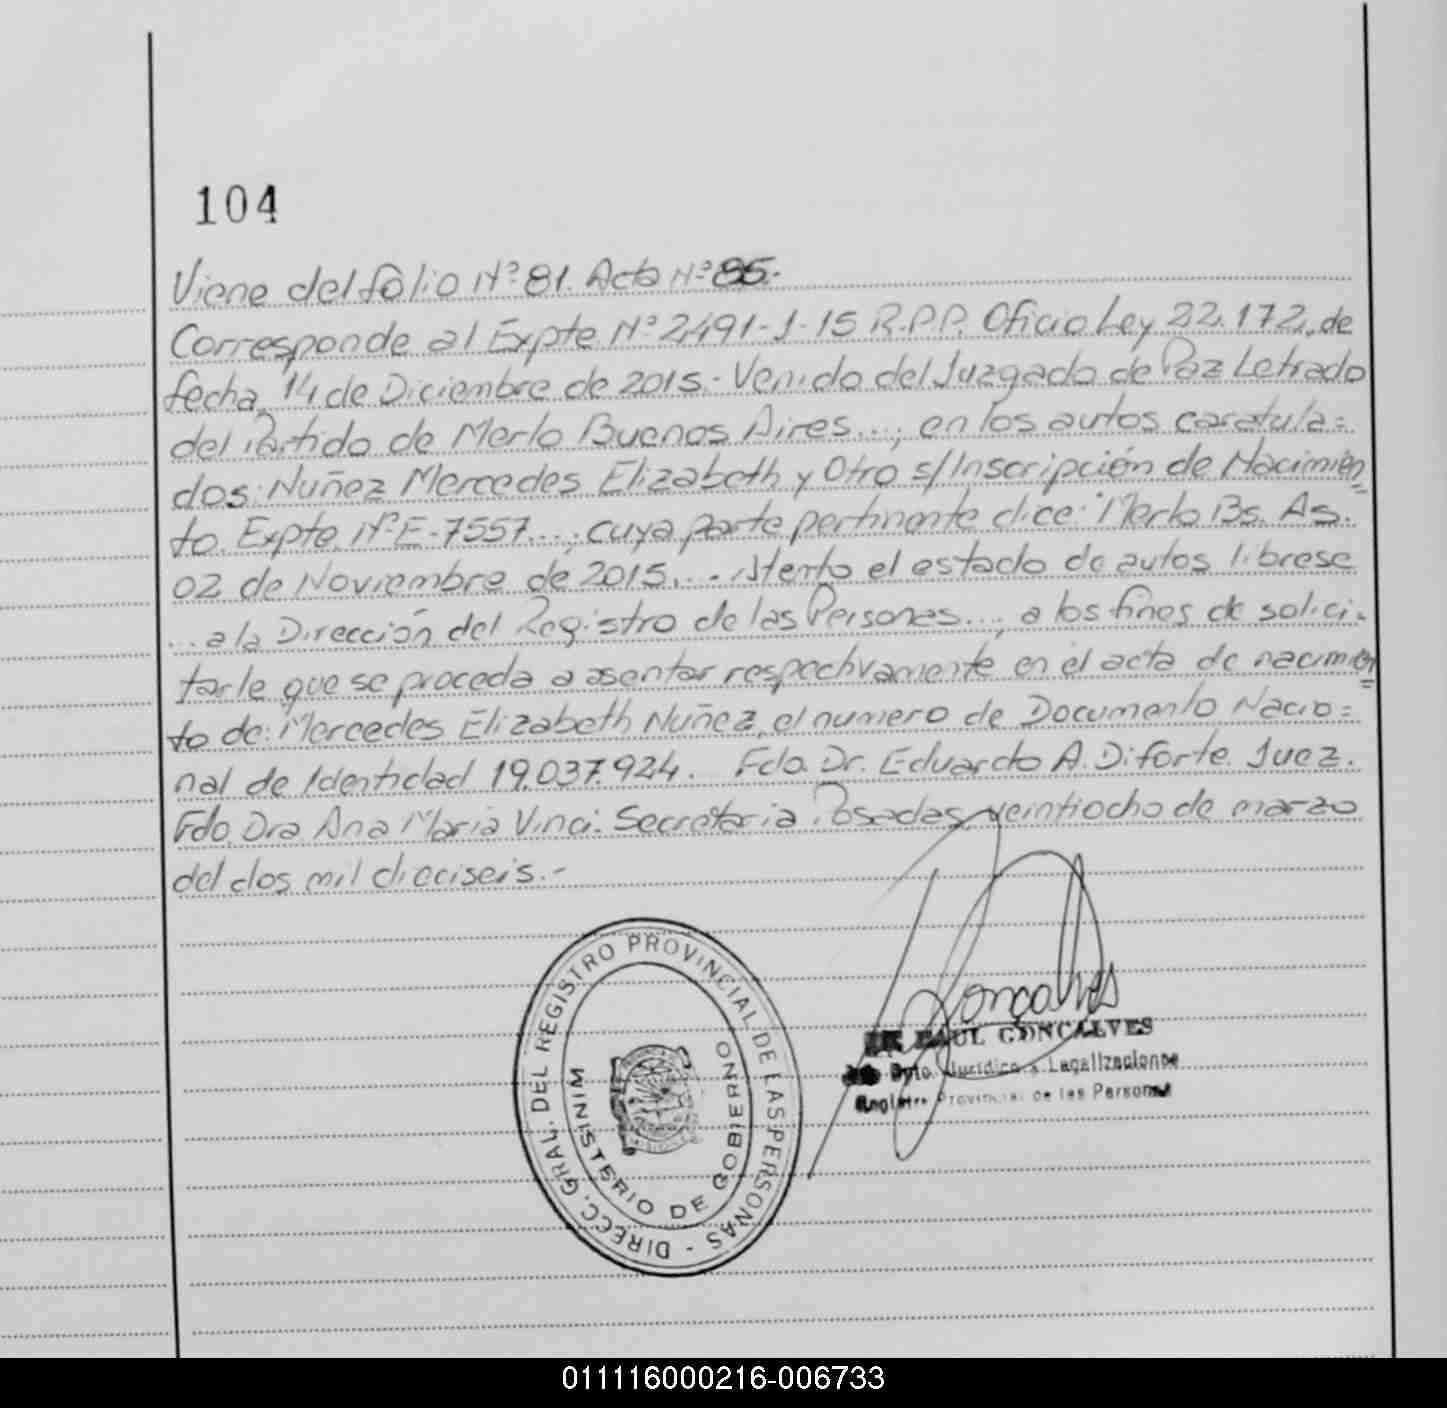 104
Viene del folio Nº 81. Acta Nº 85.-
Corresponde al Expte Nº 2491-J-15 R.P.P. Oficio Ley 22.172, de
fecha, 14 de Diciembre de 2015.- Venido del Juzgado de Paz Letrado
del Partido de Merlo Buenos Aires...; en los autos caratula=
dos: Nuñez Mercedes Elizabeth y Otro s/Inscripción de Nacimien
to. Expte. Nº E-7557...; cuya parte pertinente dice: Merlo Bs. As.
02 de Noviembre de 2015.... Atento el estado de autos librese
... a la Dirección del Registro de las Personas..., a los fines de solici-
tarle que se proceda a asentar respectivamente en el acta de nacimien
to de: Mercedes Elizabeth Nuñez, el numero de Documento Nacio=
nal de Identidad 19.037.924. Fdo. Dr. Eduardo A. Diforte. Juez.
Fdo. Dra Ana Maria Vinci. Secretaria. Posadas, veintiocho de marzo
del dos mil dieciseis.-
DIRECC. GRAL. DEL REGISTRO PROVINCIAL DE LAS PERSONAS -
MINISTERIO DE GOBIERNO
Gonçalves
RAUL GONCALVES
Dpto. Jurídico y Legalizaciones
Registro Provincial de las Personas
011116000216-006733